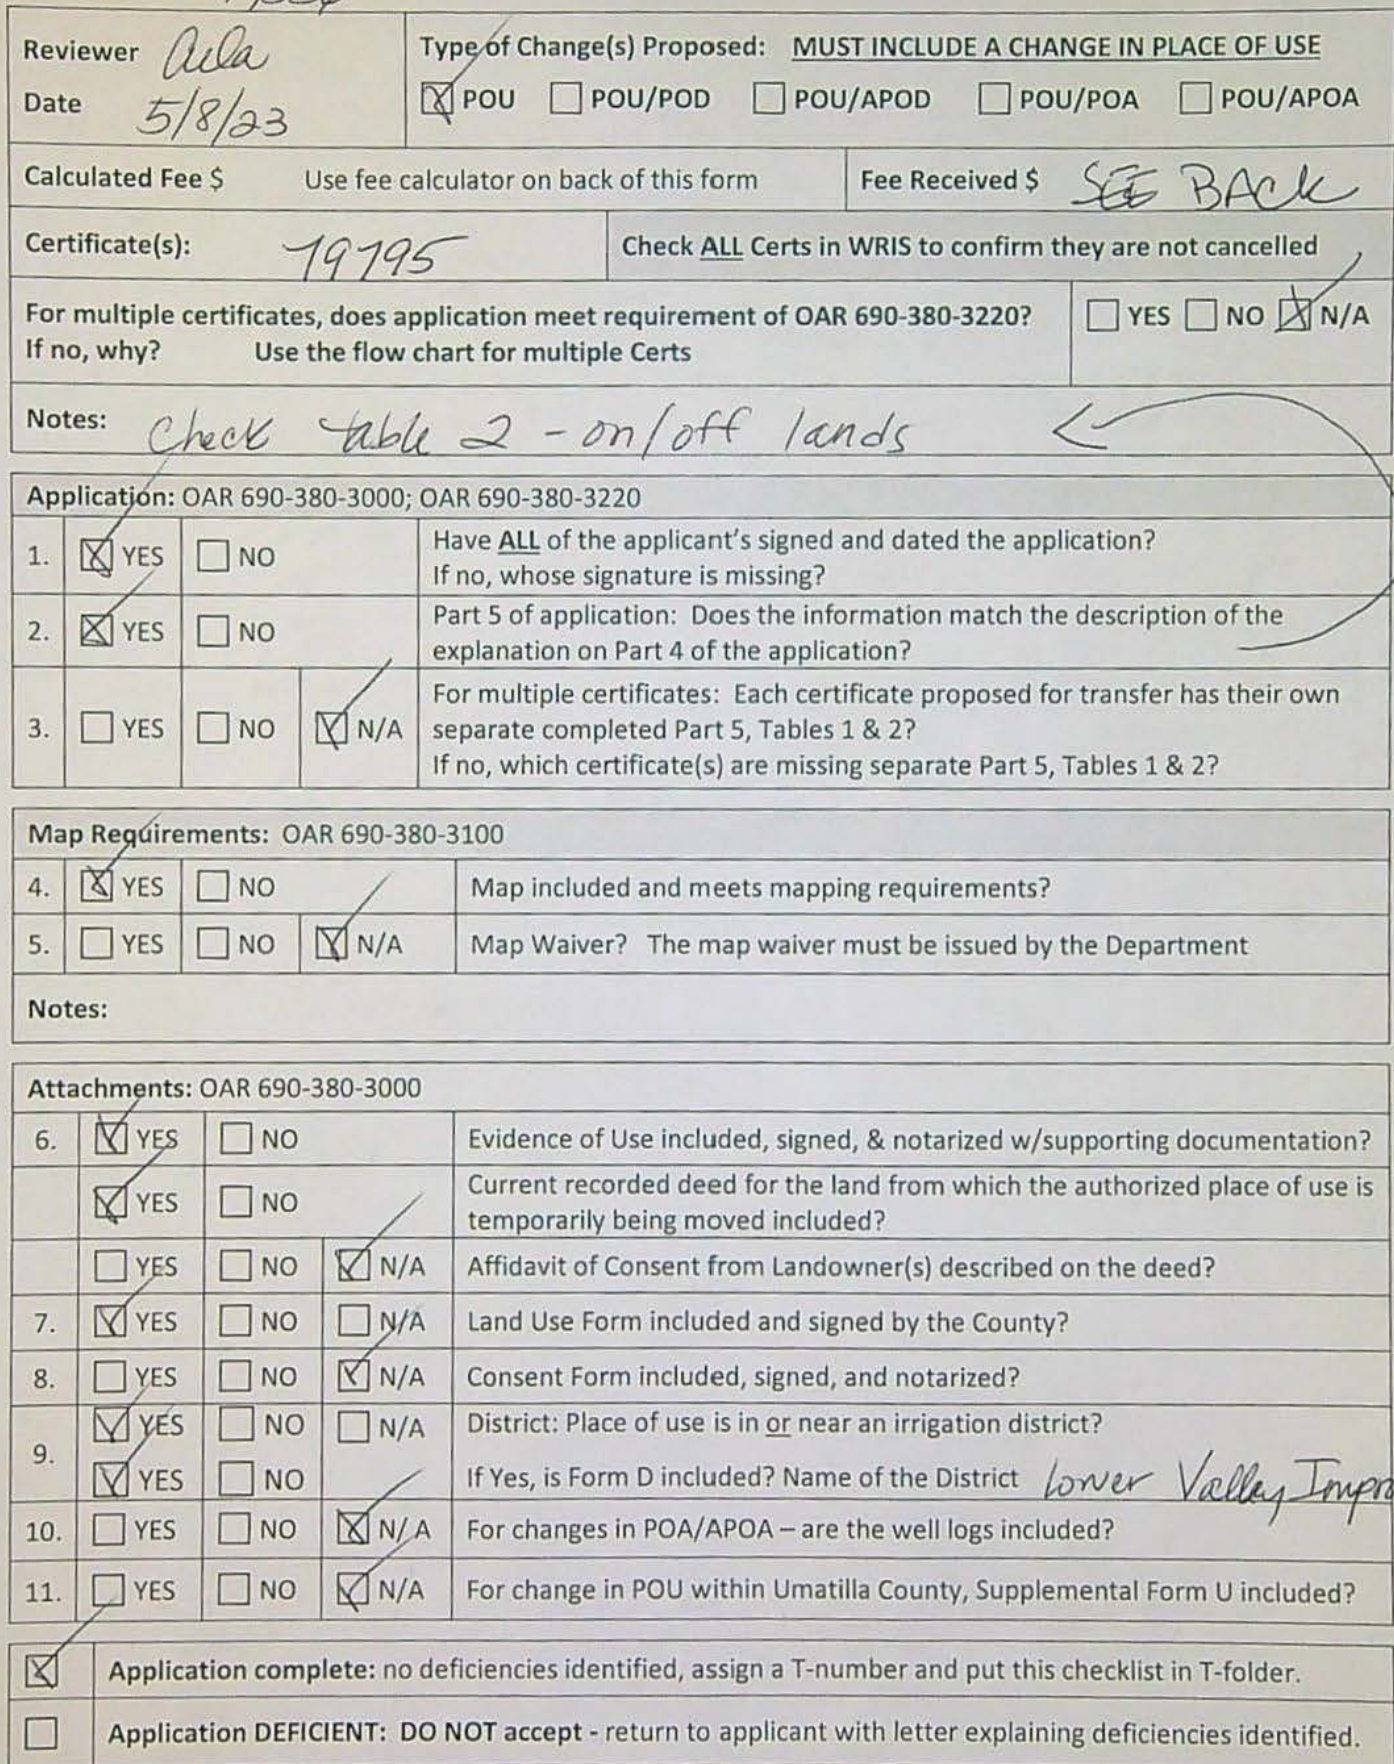 Reviewer
Date 5/8/23
Type of Change(s) Proposed: MUST INCLUDE A CHANGE IN PLACE OF USE
☒ POU ☐ POU/POD ☐ POU/APOD ☐ POU/POA ☐ POU/APOA
Calculated Fee $ Use fee calculator on back of this form
Fee Received $ SEE BACK
Certificate(s): 19795
Check ALL Certs in WRIS to confirm they are not cancelled
For multiple certificates, does application meet requirement of OAR 690-380-3220? ☐ YES ☐ NO ☒ N/A
If no, why? Use the flow chart for multiple Certs
Notes: Check table 2 - on/off lands
Application: OAR 690-380-3000; OAR 690-380-3220
1. ☒ YES ☐ NO Have ALL of the applicant's signed and dated the application?
If no, whose signature is missing?
2. ☒ YES ☐ NO Part 5 of application: Does the information match the description of the
explanation on Part 4 of the application?
3. ☐ YES ☐ NO ☒ N/A For multiple certificates: Each certificate proposed for transfer has their own
separate completed Part 5, Tables 1 & 2?
If no, which certificate(s) are missing separate Part 5, Tables 1 & 2?
Map Requirements: OAR 690-380-3100
4. ☒ YES ☐ NO Map included and meets mapping requirements?
5. ☐ YES ☐ NO ☒ N/A Map Waiver? The map waiver must be issued by the Department
Notes:
Attachments: OAR 690-380-3000
6. ☒ YES ☐ NO Evidence of Use included, signed, & notarized w/supporting documentation?
☒ YES ☐ NO Current recorded deed for the land from which the authorized place of use is
temporarily being moved included?
☐ YES ☐ NO ☒ N/A Affidavit of Consent from Landowner(s) described on the deed?
7. ☒ YES ☐ NO ☐ N/A Land Use Form included and signed by the County?
8. ☐ YES ☐ NO ☒ N/A Consent Form included, signed, and notarized?
9. ☒ YES ☐ NO ☐ N/A District: Place of use is in or near an irrigation district?
☒ YES ☐ NO If Yes, is Form D included? Name of the District Lower Valley Impro
10. ☐ YES ☐ NO ☒ N/A For changes in POA/APOA – are the well logs included?
11. ☐ YES ☐ NO ☒ N/A For change in POU within Umatilla County, Supplemental Form U included?
☒ Application complete: no deficiencies identified, assign a T-number and put this checklist in T-folder.
☐ Application DEFICIENT: DO NOT accept - return to applicant with letter explaining deficiencies identified.